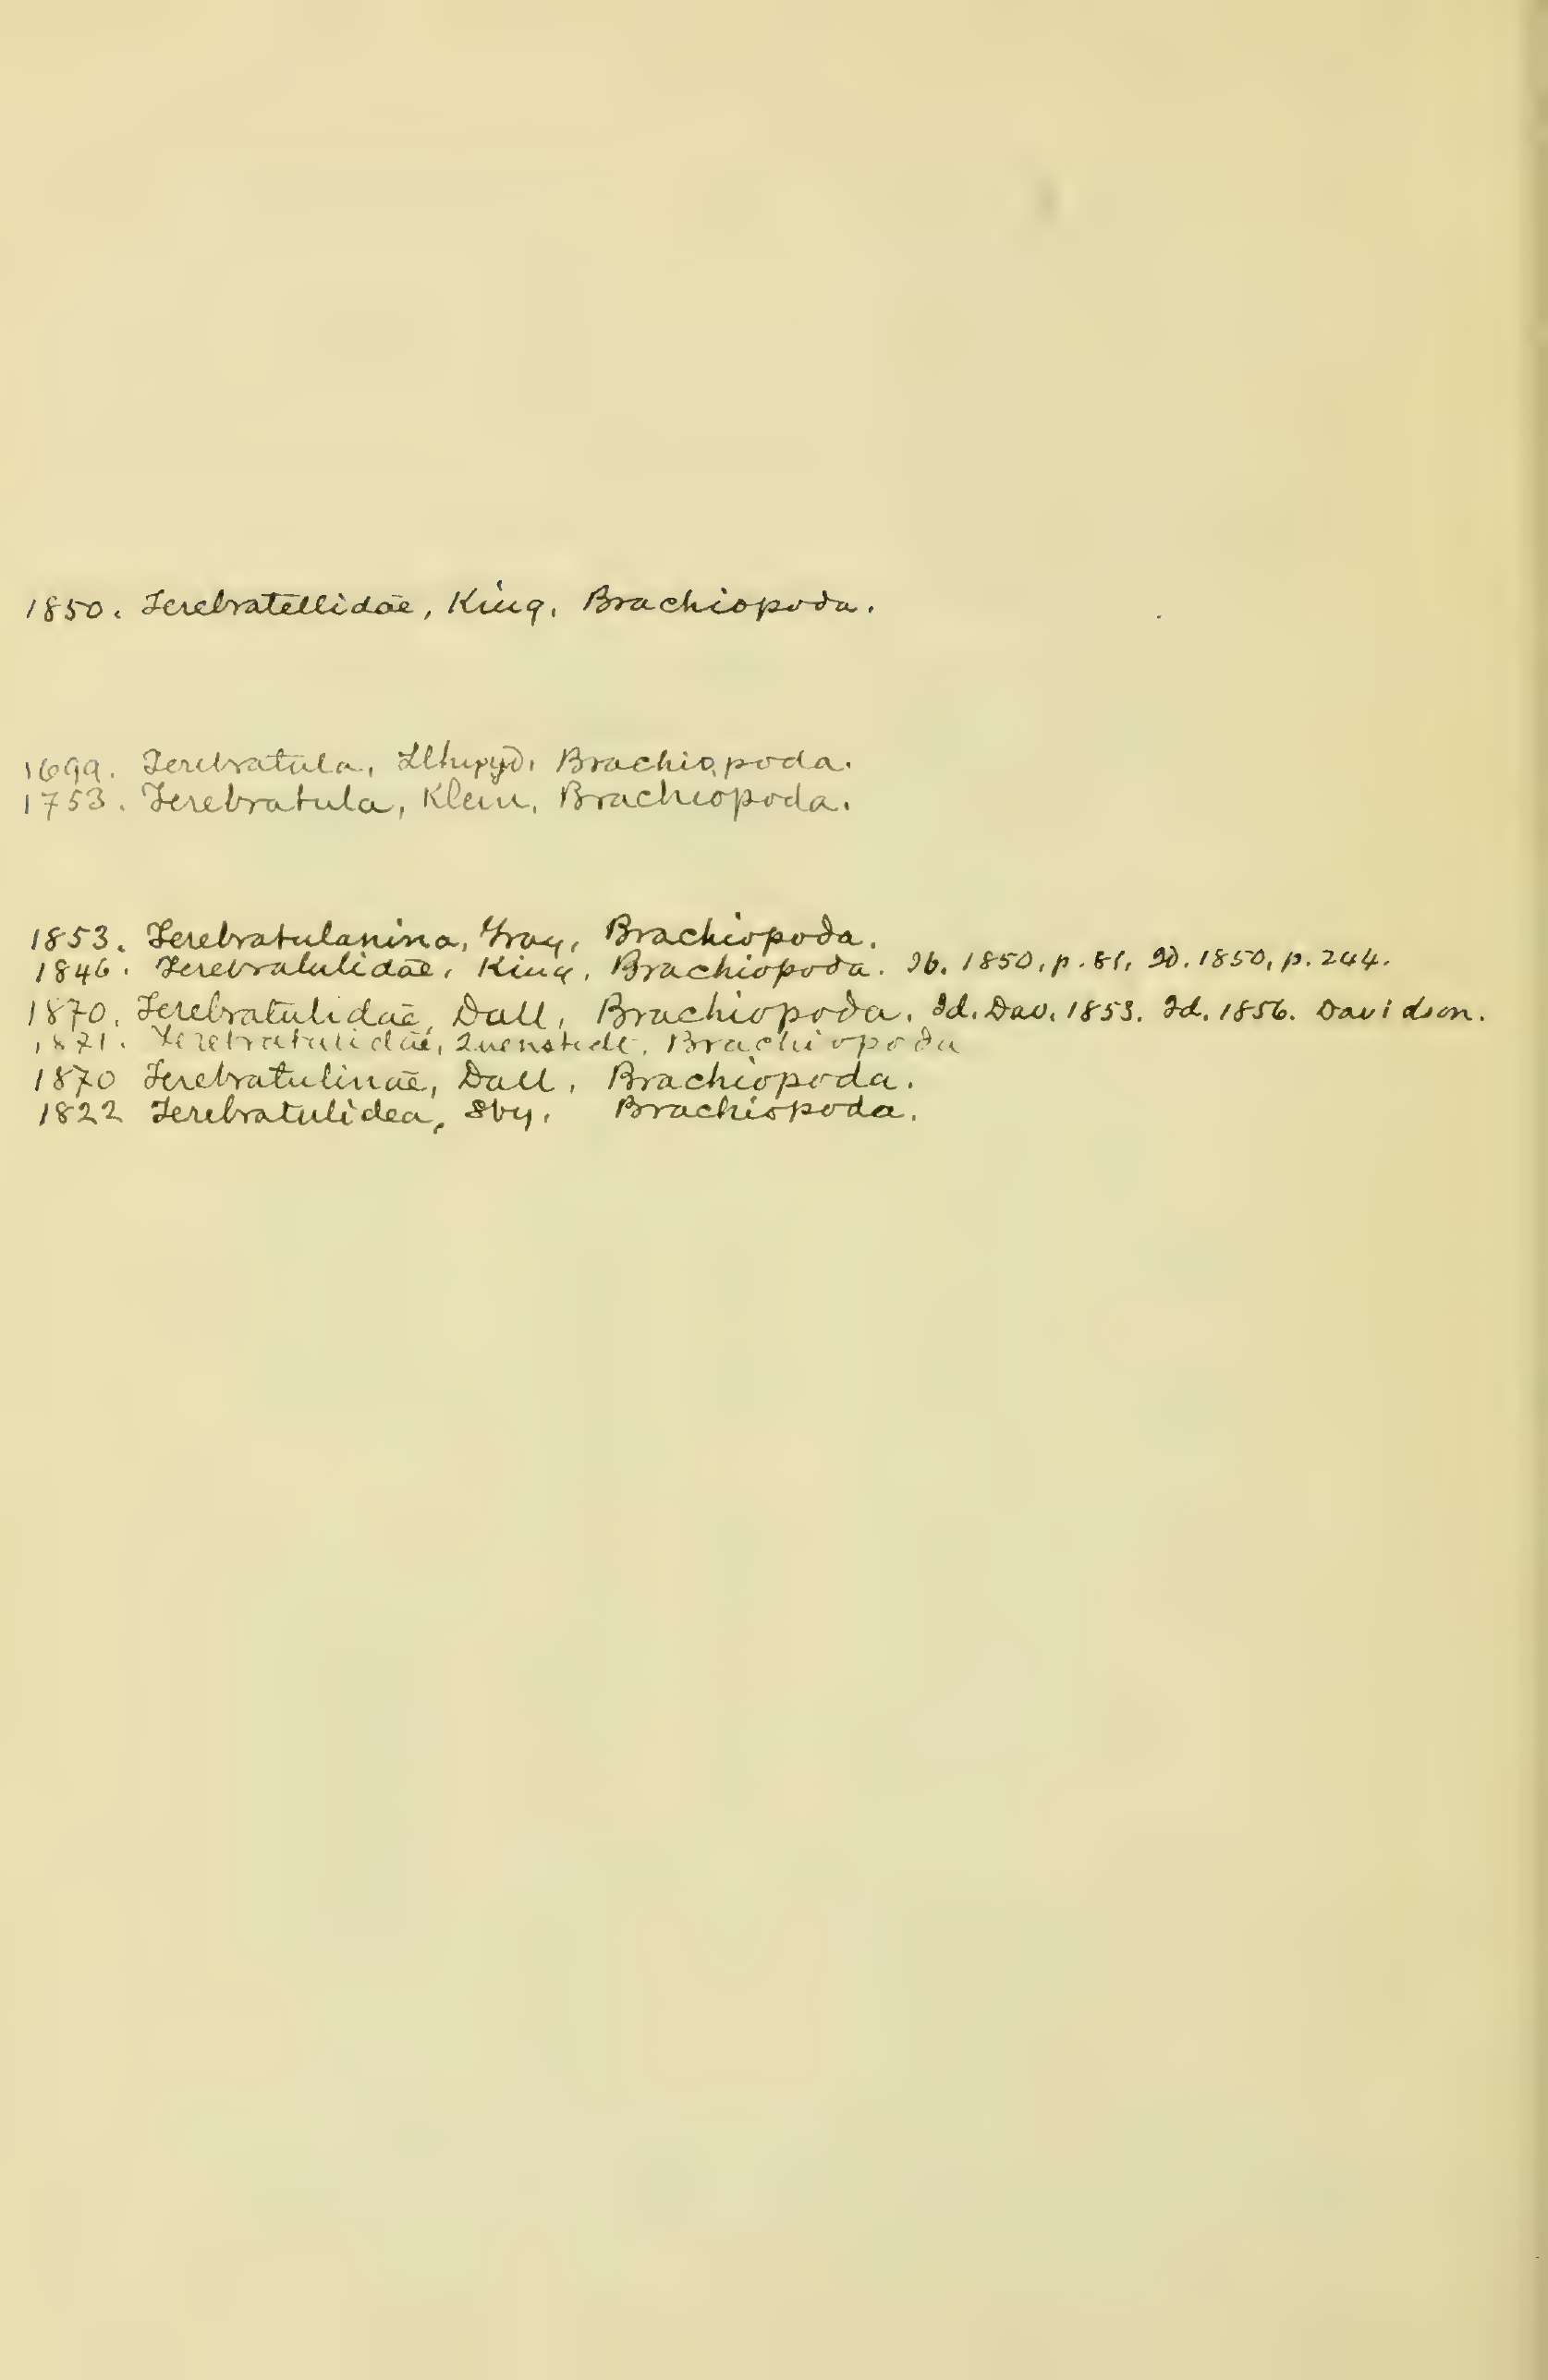 1850. Terebratellidae, King, Brachiopoda.
1699. Terebratula, Llhwyd, Brachiopoda.
1753. Terebratula, Klein, Brachiopoda.
1853. Terebratulanina, Gray, Brachiopoda.
1846. Terebratulidae, King, Brachiopoda. Ib. 1850, p. 81, Id. 1850, p. 244.
1870. Terebratulidae, Dall, Brachiopoda. Id. Dav. 1853. Id. 1856. Davidson.
1871. Terebratulidae, Quenstedt, Brachiopoda
1870 Terebratulinae, Dall, Brachiopoda.
1822 Terebratulidea, Sby, Brachiopoda.